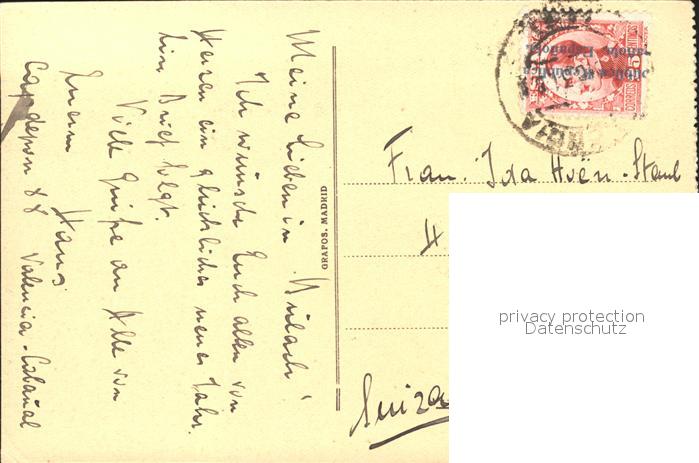 Meine Lieben in Bülach!
Ich wünsche Euch allen von
Herzen ein glückliches neues Jahr.
Ein Brief folgt.
Viele Grüsse an Alle von
Eurem Hans
Capdepon 88 Valencia-Cabañal
GRAFOS. MADRID
República Española
CORREOS
Frau. Ida Hoën-Staub
H
Suiza
privacy protection
Datenschutz